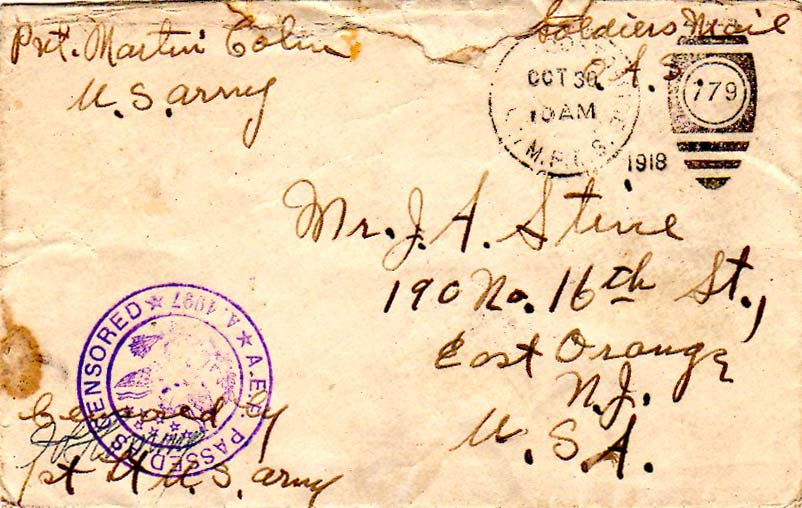 Pvt. Martin
U.S. army
Soldiers Mail
OCT 30
10AM
M.P.E.S.
1918
779
Mr. J. A. Stine
190 No. 16th St.,
East Orange
N.J.
U.S.A.
A.E.F. PASSED AS CENSORED ★ A. 4987 ★
Censored by
1st Lt U.S. army